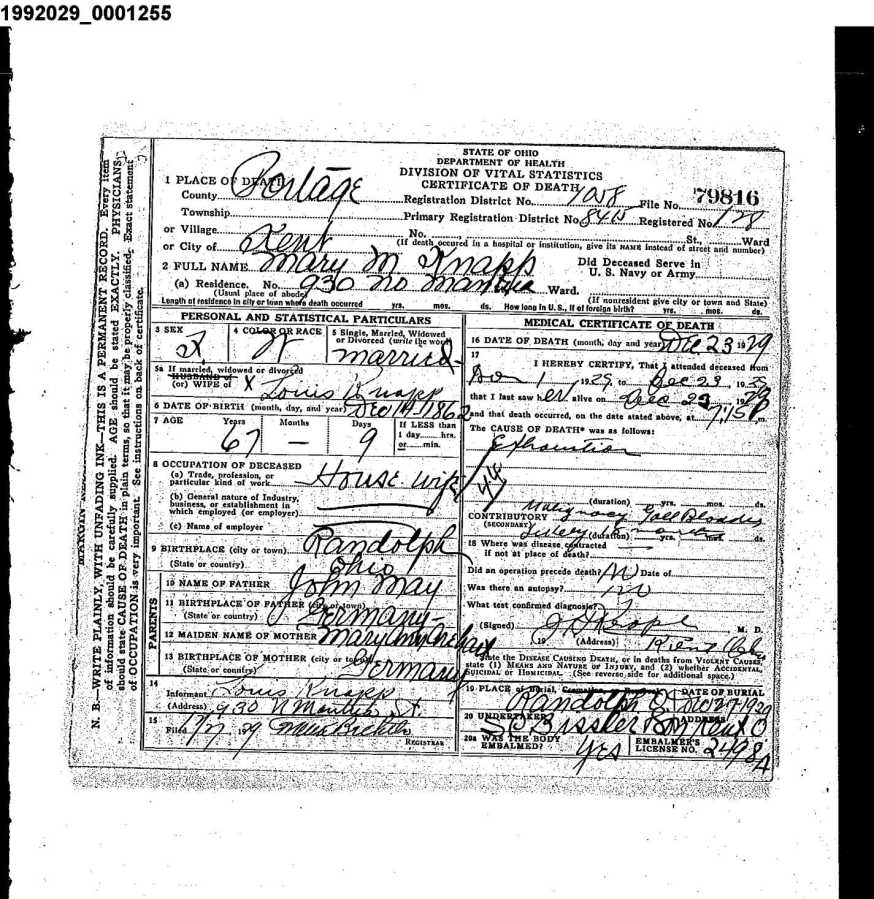 1992029_0001255
STATE OF OHIO
DEPARTMENT OF HEALTH
DIVISION OF VITAL STATISTICS
CERTIFICATE OF DEATH
79816
1 PLACE OF DEATH
County Portage Registration District No. 1058 File No.
Township Primary Registration District No. Registered No. 128
or Village No. St., Ward
or City of Kent (If death occured in a hospital or institution, give its NAME instead of street and number)
2 FULL NAME Mary M Knapp Did Deceased Serve in
U. S. Navy or Army
(a) Residence. No. 930 No Mantua Ward.
(Usual place of abode) (If nonresident give city or town and State)
Length of residence in city or town where death occurred yrs. mos. ds. How long in U. S., if of foreign birth? yrs. mos. ds.
PERSONAL AND STATISTICAL PARTICULARS
3 SEX 4 COLOR OR RACE 5 Single, Married, Widowed
or Divorced (write the word)
F W married
5a If married, widowed or divorced
HUSBAND of
(or) WIFE of Louis Knapp
6 DATE OF BIRTH (month, day, and year) Dec 14-1862
7 AGE Years Months Days If LESS than
1 day hrs.
or min.
67 — 9
8 OCCUPATION OF DECEASED
(a) Trade, profession, or
particular kind of work House wife
(b) General nature of Industry,
business, or establishment in
which employed (or employer)
(c) Name of employer
9 BIRTHPLACE (city or town) Randolph
(State or country) Ohio
PARENTS
10 NAME OF FATHER John May
11 BIRTHPLACE OF FATHER (city or town)
(State or country) Germany
12 MAIDEN NAME OF MOTHER Mary Ann
13 BIRTHPLACE OF MOTHER (city or town)
(State or country) Germany
14
Informant Louis Knapp
(Address) 930 N Mantua St.
15
Filed 12/27, 1929
REGISTRAR
MEDICAL CERTIFICATE OF DEATH
16 DATE OF DEATH (month, day and year) Dec 23 1929
17
I HEREBY CERTIFY, That I attended deceased from
1 1929, to Dec 23, 1929
that I last saw her alive on Dec 23, 1929
and that death occurred, on the date stated above, at 7:15 P m.
The CAUSE OF DEATH* was as follows:
Exhaustion
44
(duration) yrs. mos. ds.
CONTRIBUTORY Malignacy Gall Bladder
(SECONDARY)
(duration) yrs. mos. ds.
18 Where was disease contracted
if not at place of death?
Did an operation precede death? No Date of
Was there an autopsy? no
What test confirmed diagnosis?
(Signed) M. D.
, 19 (Address) Kent Ohio
*State the DISEASE CAUSING DEATH, or in deaths from VIOLENT CAUSES,
state (1) MEANS AND NATURE OF INJURY, and (2) whether ACCIDENTAL,
SUICIDAL or HOMICIDAL. (See reverse side for additional space.)
19 PLACE of Burial, Cremation, DATE OF BURIAL
Randolph O Dec 27 1929
20 UNDERTAKER ADDRESS
Bissler & Son Kent O
20a WAS THE BODY
EMBALMED? Yes EMBALMER'S
LICENSE NO. 2498A
MARGIN
N. B.—WRITE PLAINLY, WITH UNFADING INK—THIS IS A PERMANENT RECORD. Every item
of information should be carefully supplied. AGE should be stated EXACTLY. PHYSICIANS
should state CAUSE OF DEATH in plain terms, so that it may be properly classified. Exact statement
of OCCUPATION is very important. See instructions on back of certificate.